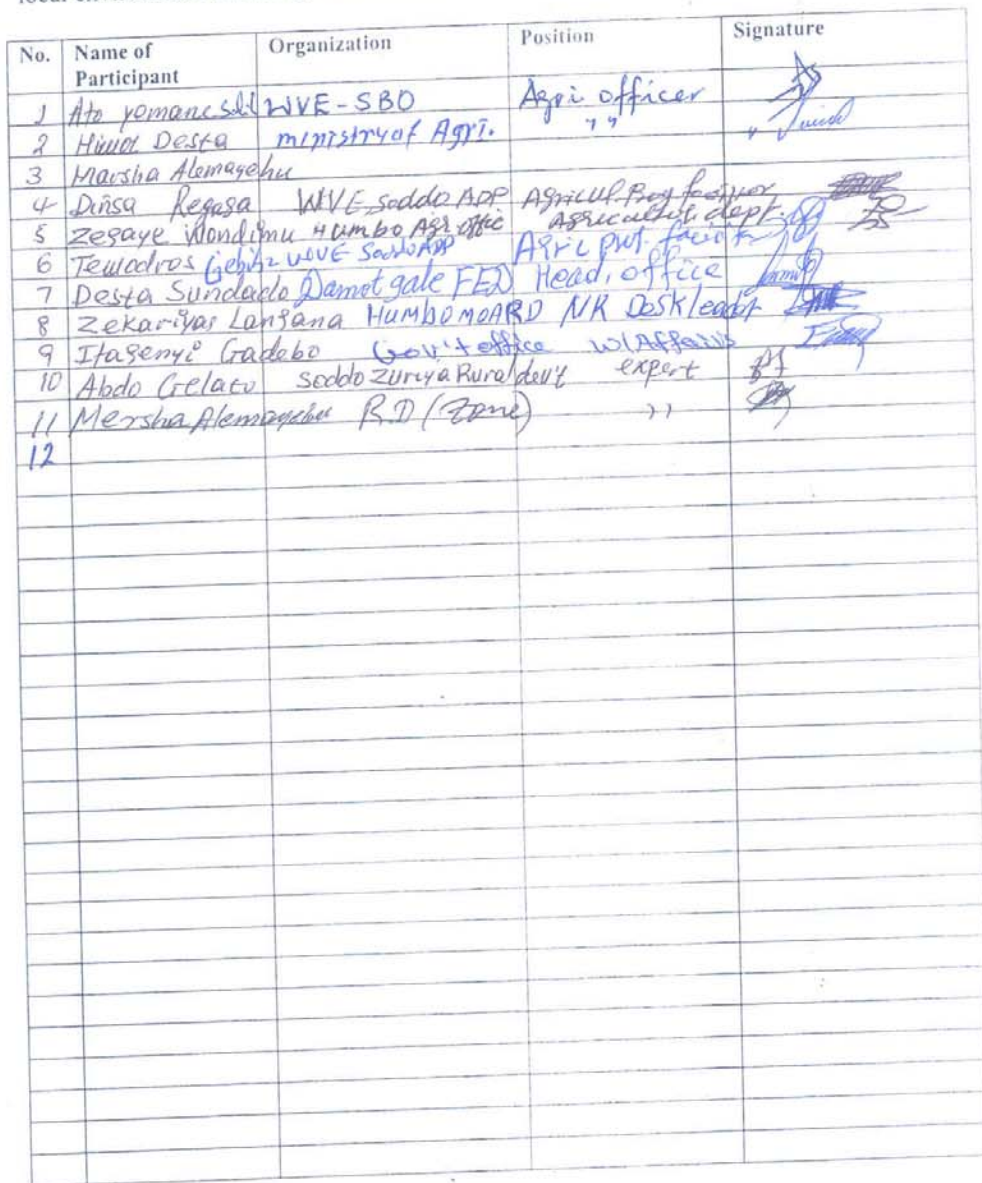 No. Name of Participant Organization Position Signature
1 Ato WVE-SBO Agri officer
2 Desta ministry of Agri. " "
3 Marsha Alemayehu
4 Dinsa Regasa WVE, Soddo ADP Agricul.
5 Zegaye Wondimu Humbo Agri offic Agricultur dept.
6 Tewodros WVE Soddo ADP Agric
7 Desta Sundado Damot gale FED Head, office
8 Zekariyas Langana Humbo MOARD NR Desk leader
9 Itagenyi Gadebo Gov't office W/Affairs
10 Abdo Gelato Soddo Zuriya Rural dev't expert
11 Mersha Alemayehu R.D (Zone) ''
12